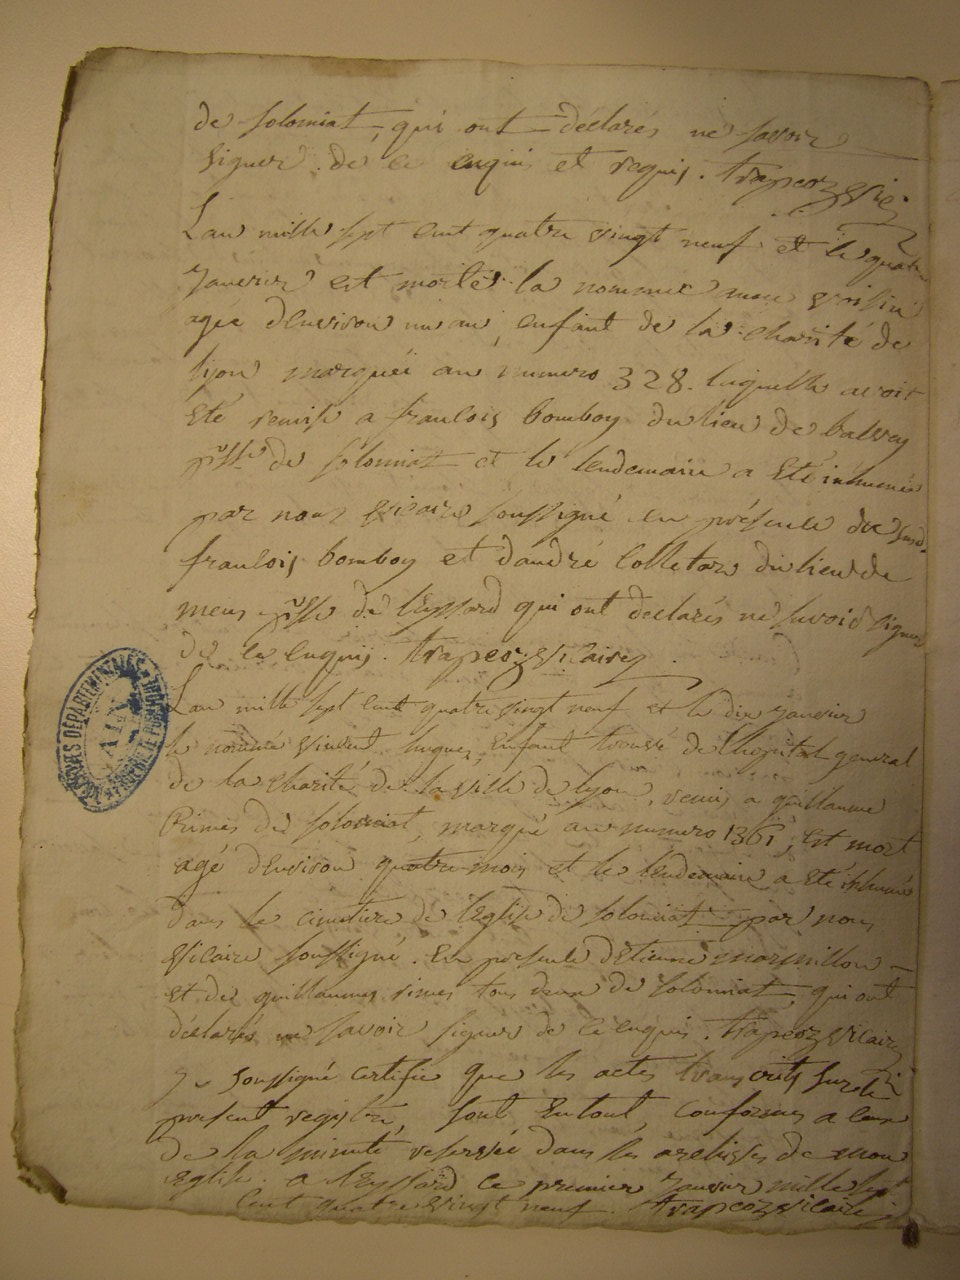 de solomiat, qui ont déclarés ne savoir
signer de ce enquis et requis. trapeoz vic.
Lan mille sept cent quatre vingt neuf et le quatre
janvier est morte la nommée voisin
agée denviron un an, enfant de la charité de
lyon marquée au numero 328. laquelle avoit
été remise a francois bomboy du lieu de balvay
psse de solomiat et le lendemain a été inhumée
par nous vicaire soussigné en présence du susd.
francois bomboy et dandré Colletaz du lieu de
psse de leyssard qui ont déclarés ne savoir signer
de ce enquis. trapeoz vicaire
Lan mille sept cent quatre vingt neuf et le dix janvier
le nommé vincent hugues, enfant trouvé de lhopital general
de la charité de la ville de lyon, remis a guillaume
de solomiat, marqué au numero 1361, est mort
agé denviron quatre mois et le lendemain a été inhumé
dans le cimetiere de léglise de solomiat par nous
vicaire soussigné. En présence détienne marmillon
et de guillaume tous deux de solomiat, qui ont
déclarés ne savoir signer de ce enquis. trapeoz vicaire
soussigné certifie que les actes transcrits sur le
présent registre, sont en tout, conformes a ceux
de la minute reservée dans les archives de mon
église. a leyssard ce premier janvier mille sept
cent quatre vingt neuf. trapeoz vicaire
ARCHIVES DÉPARTEMENTALES
AIN